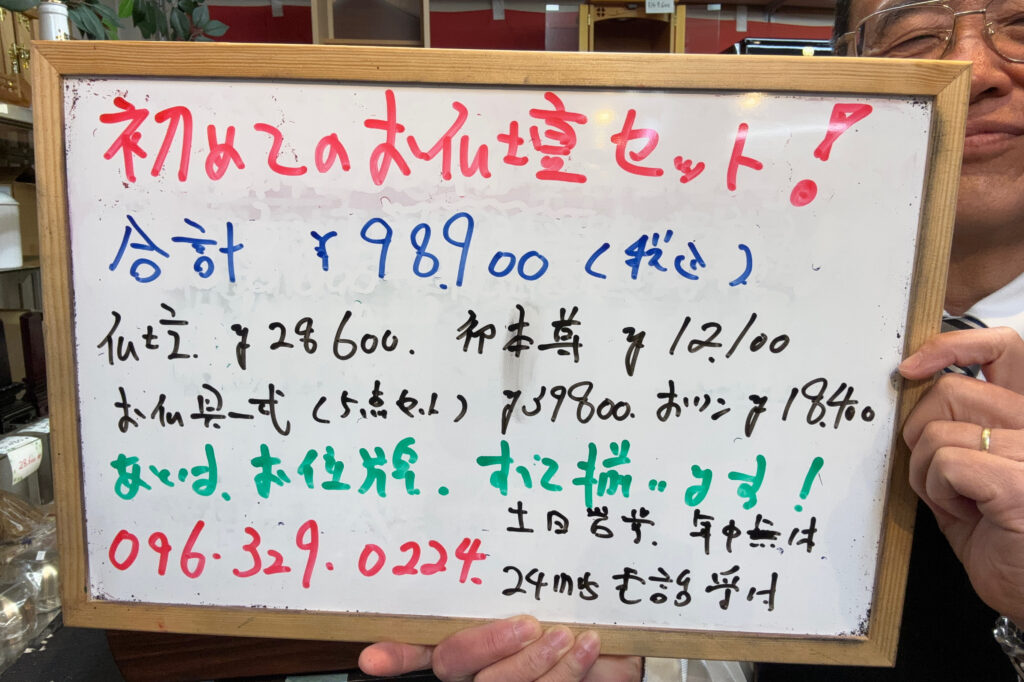 初めてのお仏壇セット!
合計 ¥98,900(税込)
仏壇.¥28600. 御本尊 ¥12,100
お仏具一式(5点セット)¥39800. おリン ¥18,400
あとは、お位牌. すべて揃います!
土日営業. 年中無休
096.329.0224.
24時間電話受付